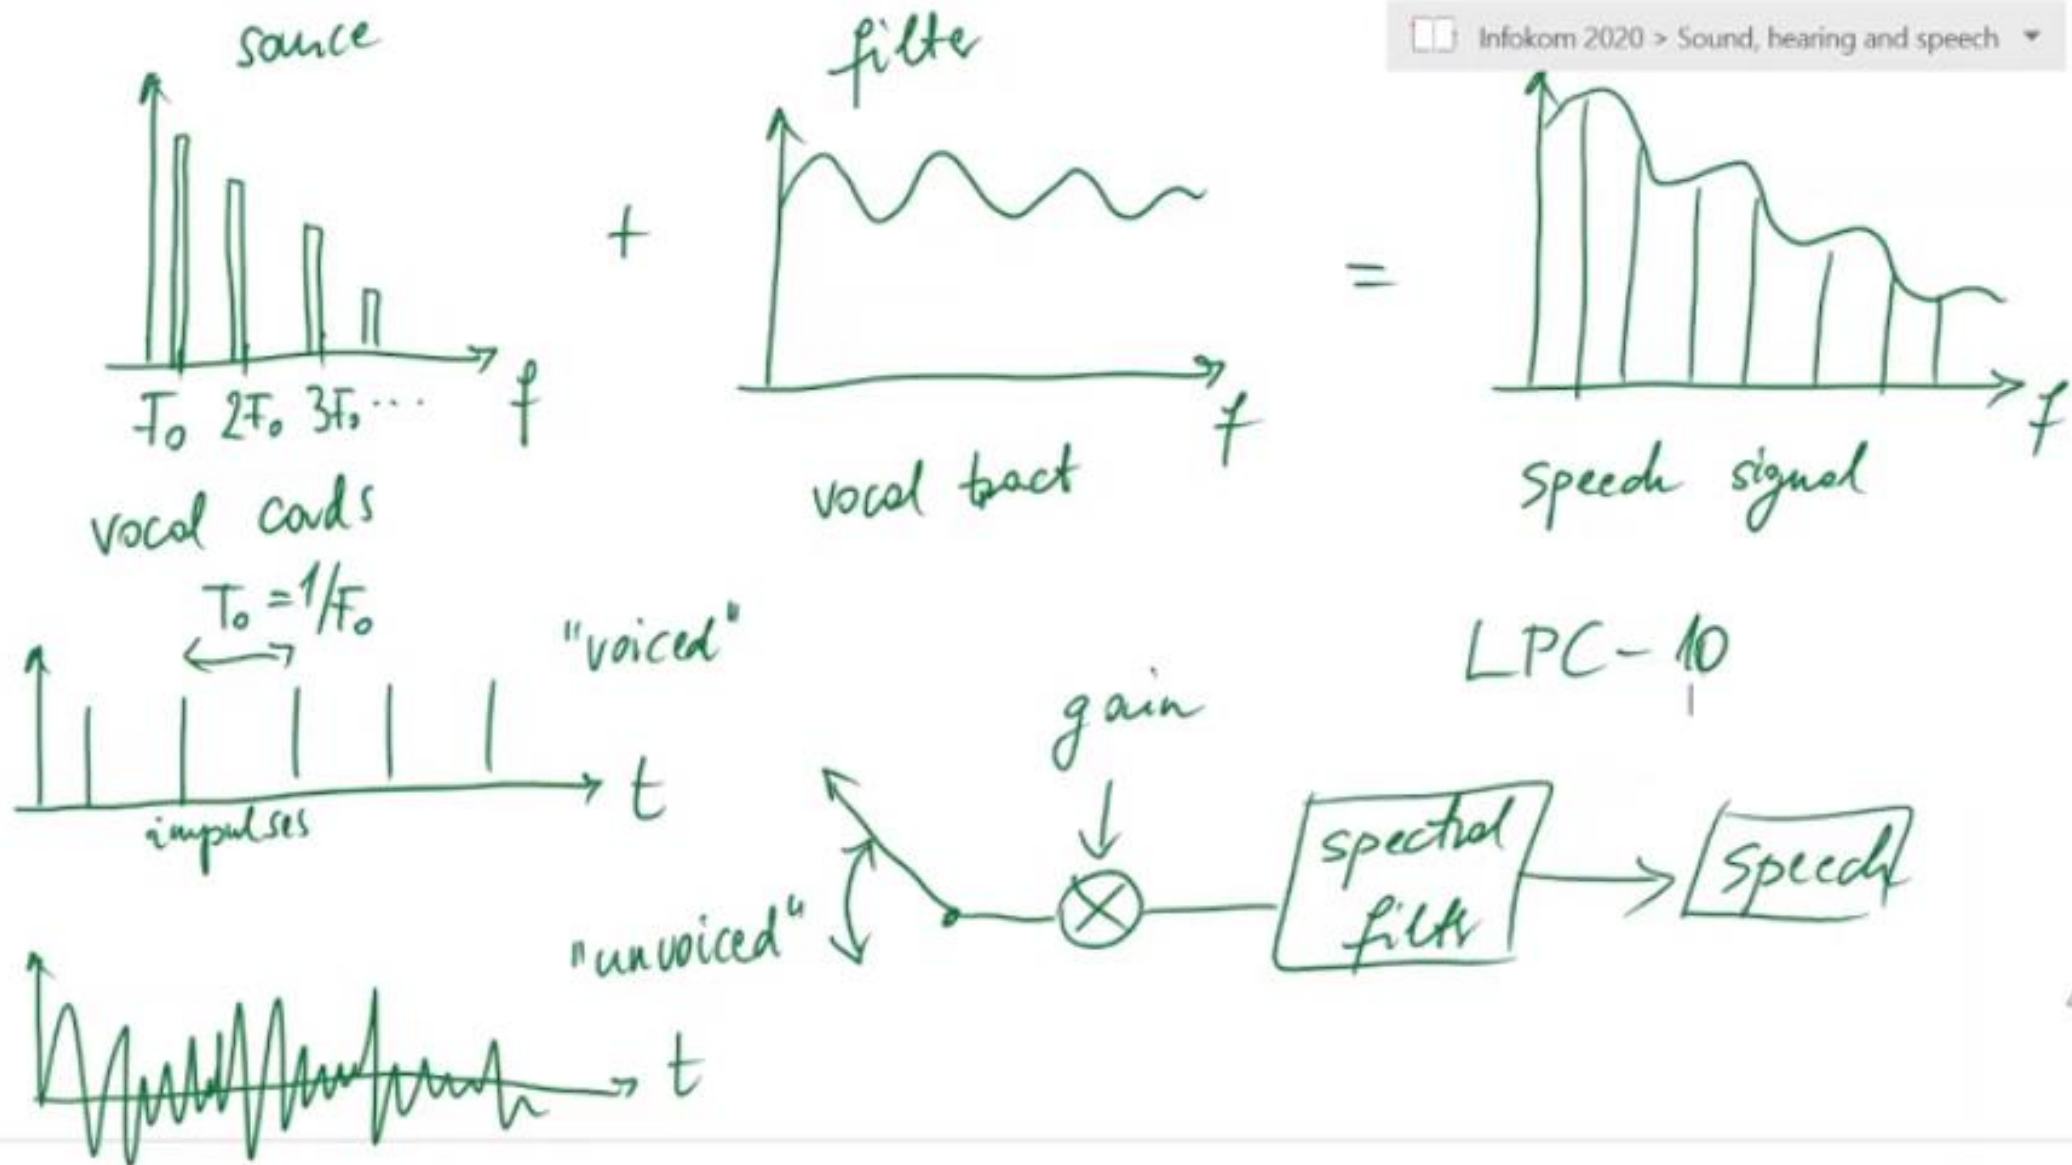 Infokom 2020 > Sound, hearing and speech
source
filter
+
=
F₀ 2F₀ 3F₀ ...
f
f
f
vocal cords
vocal tract
speech signal
T₀ = 1/F₀
"voiced"
LPC-10
gain
t
impulses
spectral
filter
speech
"unvoiced"
t